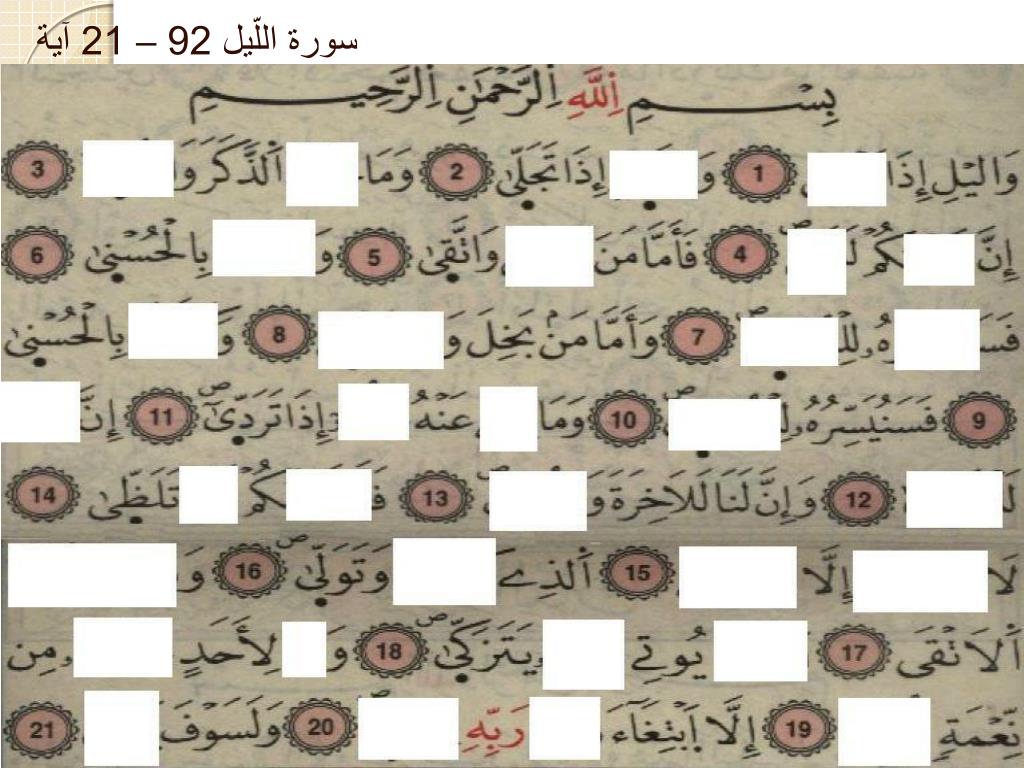 سورة اللّيل 92 – 21 آية
بِسْمِ اِللَّهِ اِلرَّحْمَٰنِ اِلرَّحِيمِ
وَاليْلِ إِذَا 1 وَ إِذَا تَجَلّىٰ 2 وَمَا اَلذَّكَرَ وَ 3
إِنَّ كُمْ لَ 4 فَأَمَّا مَنَ وَاتَّقىٰ 5 وَ بِالْحُسْنىٰ 6
فَسَ هُۥ لِل 7 وَأَمَّا مَنۢ بَخِلَ وَ 8 وَ بِالْحُسْنىٰ
9 فَسَنُيَسِّرُهُۥ لِ 10 وَمَا عَنْهُ إِذَا تَرَدّىٰ 11 إِنَّ
لَ 12 وَإِنَّ لَنَا لَلَاخِرَةَ وَ 13 فَ كُمْ تَلَظّىٰ 14
لَا إِلَّا 15 اَلذِے وَتَوَلّىٰ 16 وَ
اَلَاتْقَى 17 يُوتِے يَتَزَكّىٰ 18 وَ لِأَحَدٍ مِن
نِّعْمَةٍ 19 إِلَّا اَبْتِغَآءَ رَبِّهِ 20 وَلَسَوْفَ 21